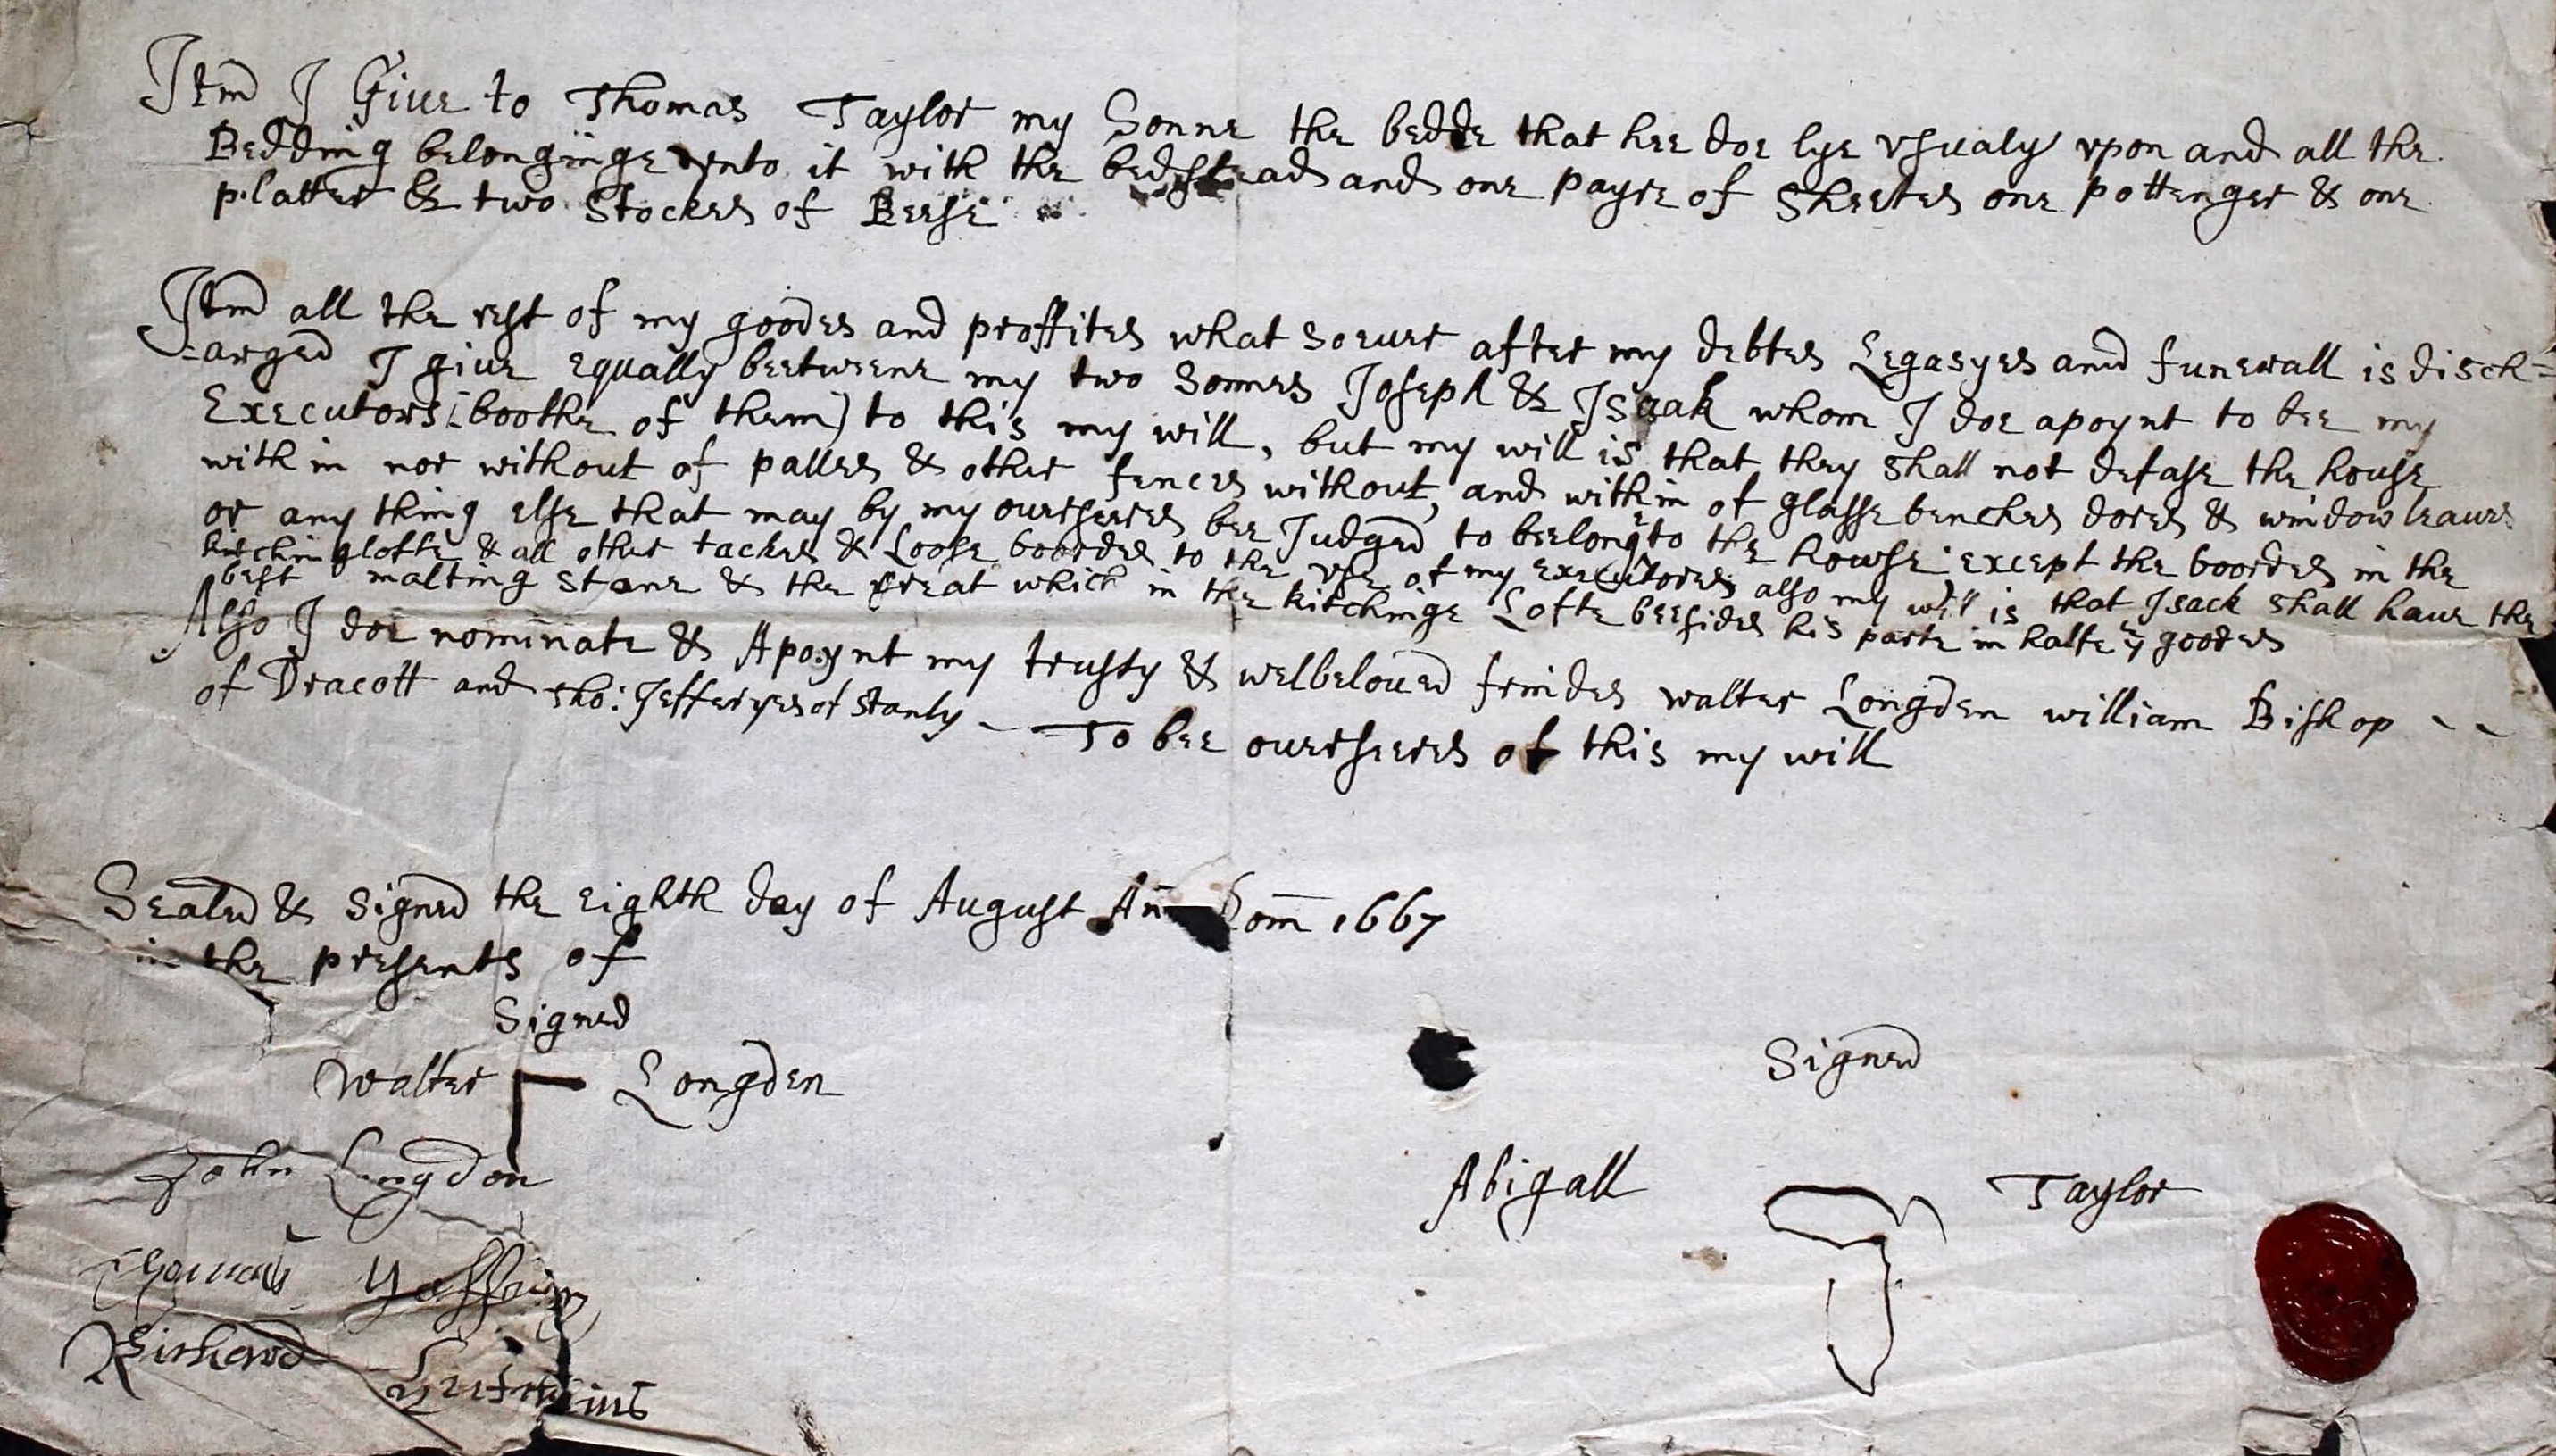 Itm I Giue to Thomas Taylor my Sonne the bedde that hee doe lye vsualy vpon and all the
Bedding belonginge vnto it with the bedstead and one payre of Sheetes one pottenger & one
platter & two Stockes of Beese
Itm all the rest of my goodes and proffites what soeuer after my debtes Legasyes and funerall is disch=
=arged I giue equally beetweene my two Sonnes Joseph & Isaak whom I doe apoynt to bee my
Executors (boothe of them) to this my will, but my will is that they shall not defase the house
with in nor without of palles & other fences without, and within of glasse benches dores & window leaues
or any thing else that may by my ouerseeres bee Judged to beelong to the howse except the boordes in the
kitchin glofte & all other tackes & Loose boordes to the vse of my executores also my will is that Isack shall haue the
best malting stone & the which in the kitchinge Lofte beesides his parte in halfe goodes
Also I doe nominate & Apoynt my trusty & welbeloued frindes walter Longden william Bishop
of Dracott and Tho: Jefferyes of Stanly To bee ouerseeres of this my will
Sealed & Signed the eighth day of August An Dom 1667
in the presents of
Signed
Walter Longden
John Longdon
Thomas
Richard
Signed
Abigall Taylor